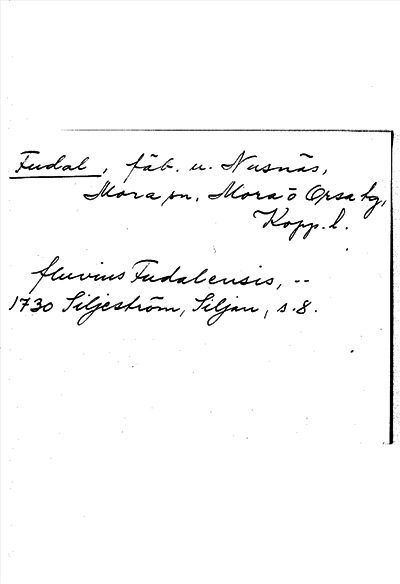 Fudal, fäb. u. Nusnäs,
Mora sn, Mora o Orsa tg,
Kopp. l.
fluvius Fudalensis, --
1730 Siljeström, Siljan, s. 8.